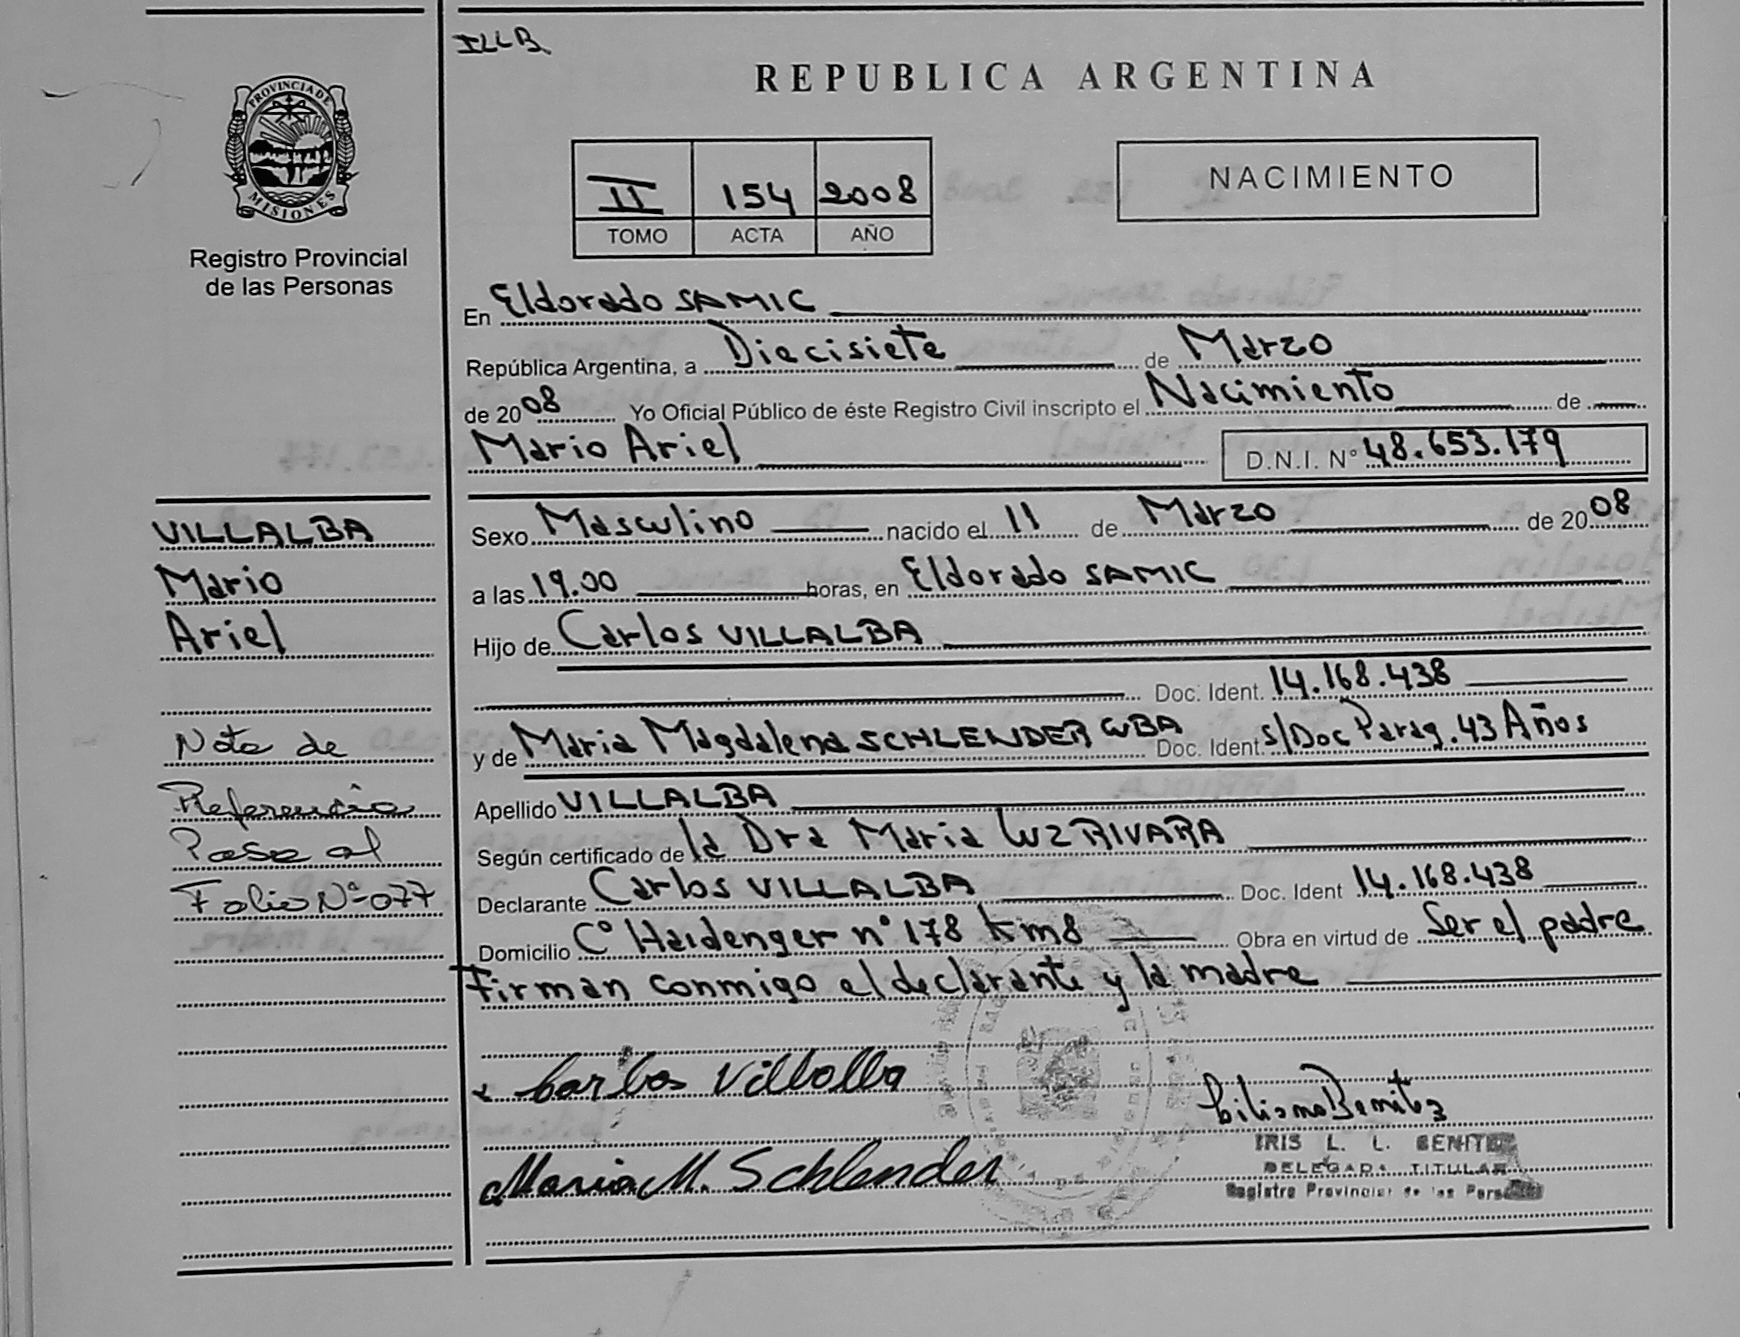 ILLB
REPUBLICA ARGENTINA
PROVINCIA DE
MISIONES
Registro Provincial
de las Personas
II 154 2008
TOMO ACTA AÑO
NACIMIENTO
En Eldorado SAMIC
República Argentina, a Diecisiete de Marzo
de 2008 Yo Oficial Público de éste Registro Civil inscripto el Nacimiento de
Mario Ariel D.N.I. N° 48.653.179
VILLALBA
Mario
Ariel
Nota de
Referencia
Pase al
Folio Nº 077
Sexo Masculino nacido el 11 de Marzo de 2008
a las 19.00 horas, en Eldorado SAMIC
Hijo de Carlos VILLALBA
Doc. Ident. 14.168.438
y de Maria Magdalena SCHLENDER Doc. Ident s/Doc Parag. 43 Años
Apellido VILLALBA
Según certificado de la Dra Maria Luz RIVARA
Declarante Carlos VILLALBA Doc. Ident 14.168.438
Domicilio Cº Haidenger nº 178 Km8 Obra en virtud de Ser el padre
Firman conmigo el declarante y la madre
Carlos Villalba
Liliana Benitez
IRIS L. L. BENITEZ
DELEGADA TITULAR
Registro Provincial de las Personas
Maria M. Schlender